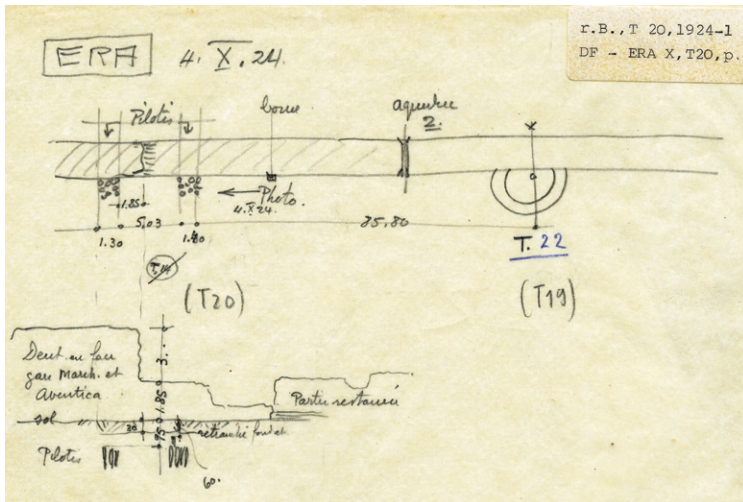 r.B.,T 20,1924-1
DF - ERA X,T20,p.
ERA 4.X.24.
Pilotis borne aqueduc
2.
Photo.
4.X.24.
1.85
5.03 35,80
1.30 1.40
T. 22
(T20) (T19)
3.
Dent en face
gare March. et
Aventica
1.85
Partie restaurée
sol
30 75
retranché fond et
Pilotis
60.